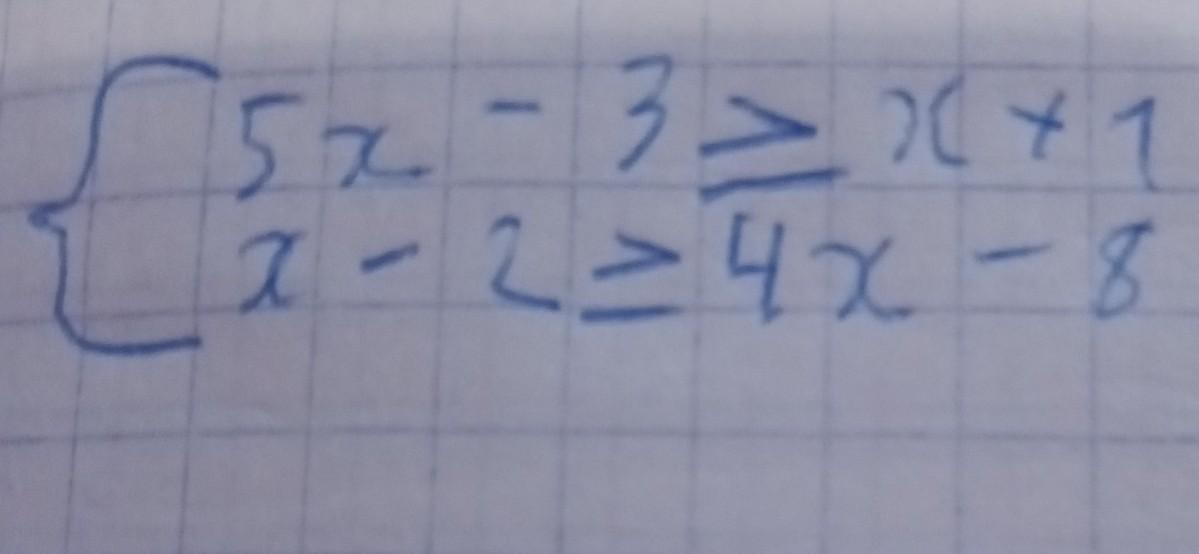 5x - 3 ≥ x + 1
x - 2 ≥ 4x - 8